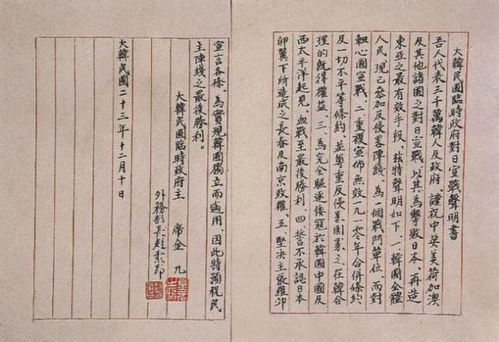 大韓民國臨時政府對日宣戰聲明書
吾人代表三千萬韓人及政府、謹祝中英美荷加澳
及其他諸國之對日宣戰、以其為擊敗日本、再造
東亞之最有效手段、茲特聲明如下、一、韓國全體
人民、現已參加反侵畧陣綫、為一個戰鬥單位、而對
軸心國宣戰、二、重複宣佈無效一九一〇年合併條約
及一切不平等條約、並尊重反侵畧國家之在韓合
理的既得權益、三、為完全驅逐倭寇於韓國中國及
西太平洋起見、血戰至最後勝利、四、誓不承認日本
卵翼下所造成之長春及南京政權、五、堅決主張羅邱
宣言各條、為實現韓國獨立而適用、因此特預祝民
主陣綫之最後勝利。
大韓民國臨時政府主 席金 九
外務部長趙素卬
大韓民國二十三年十二月十日